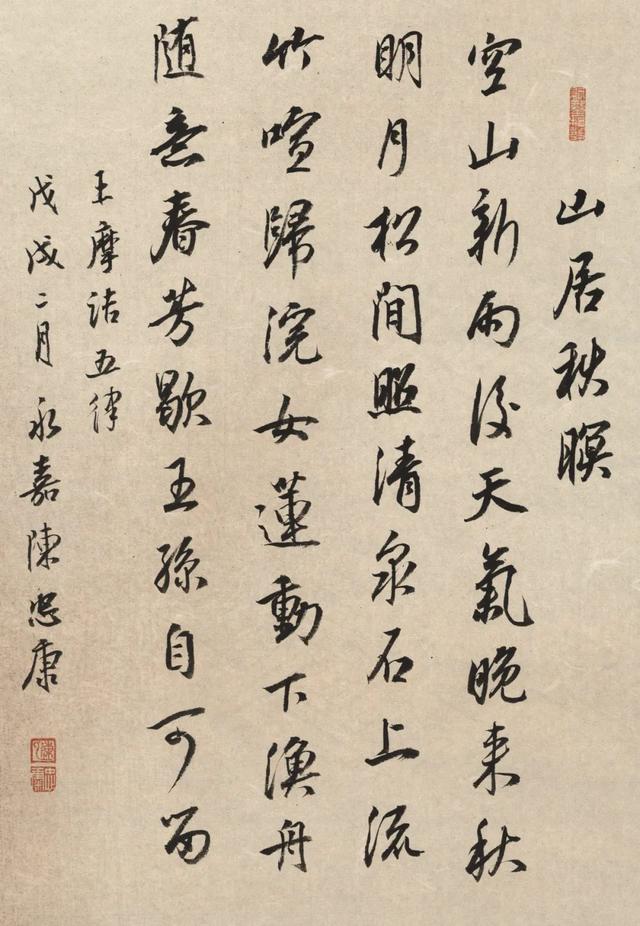 山居秋暝
空山新雨後天氣晚来秋
明月松間照清泉石上流
竹喧歸浣女蓮動下漁舟
随意春芳歇王孫自可留
王摩詰五律
戊戌二月永嘉陳忠康